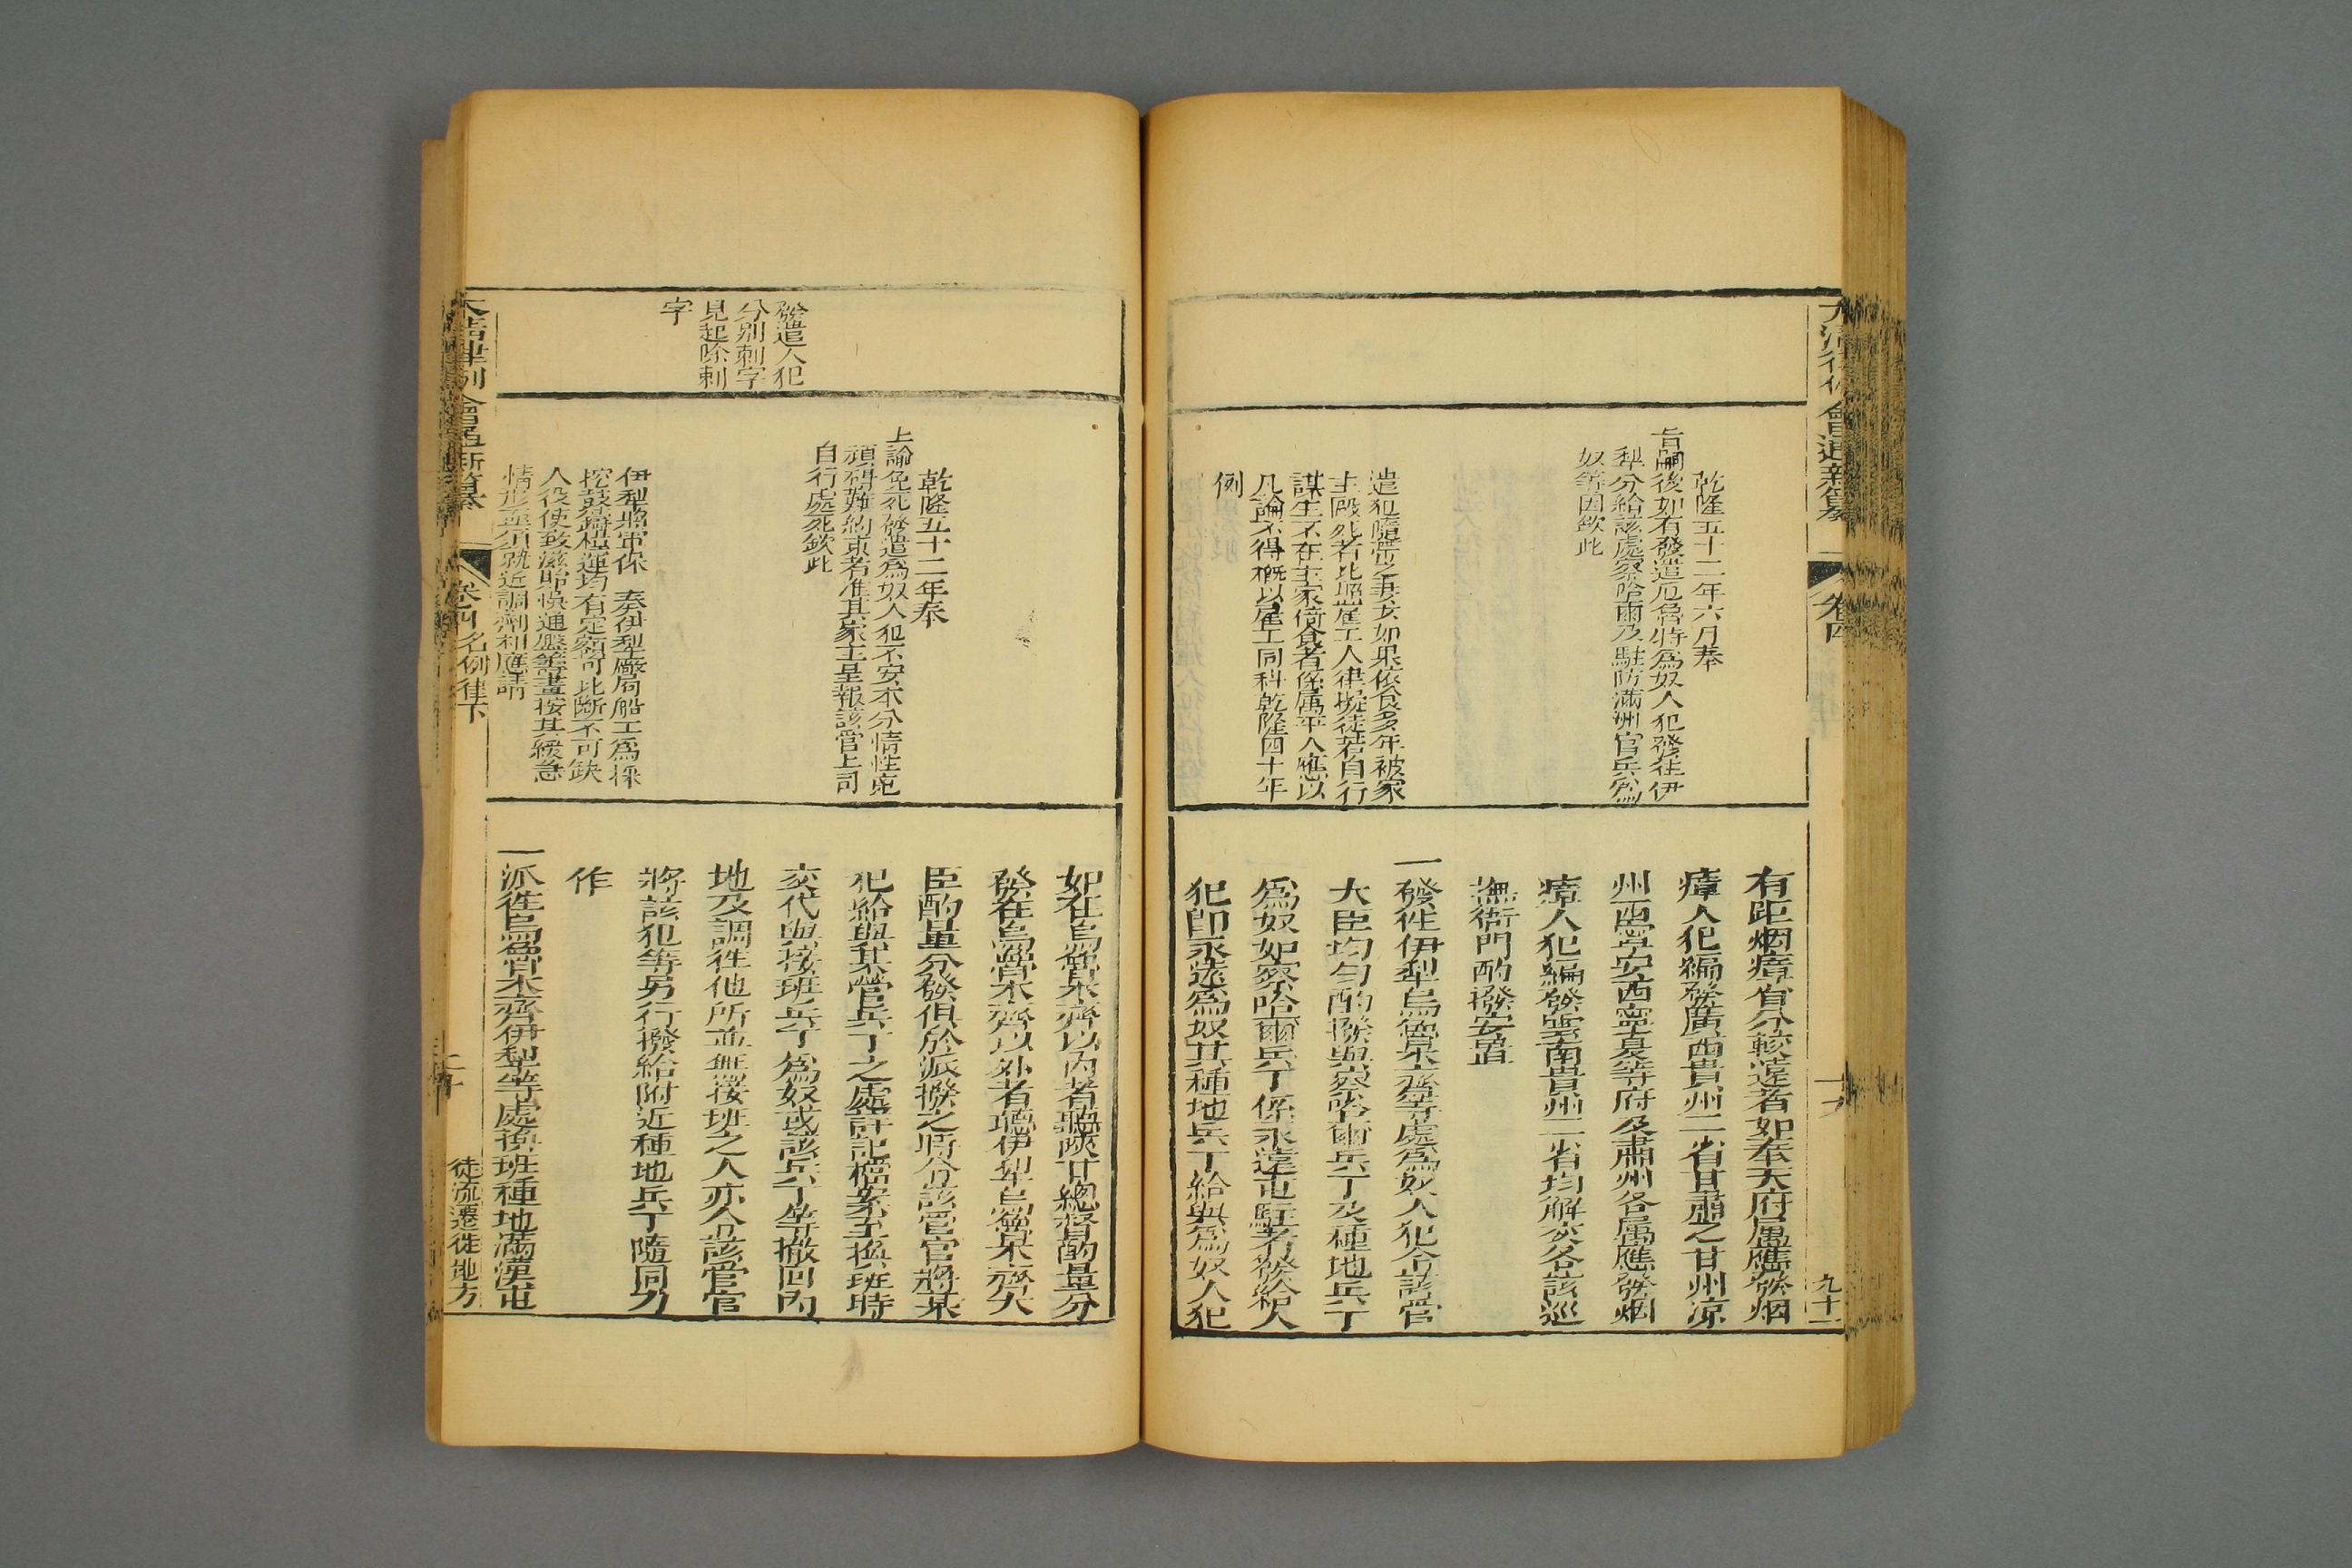 大清律例會通新纂
卷四
九十一
乾隆五十二年六月奉
旨嗣後如有發遣厄魯特為奴人犯發往伊
犁分給該處察哈爾及駐防滿洲官兵為
奴等因欽此
遣犯隨帶之妻女如果依食多年被家
主毆死者比照雇工人律擬徒若自行
謀生不在主家倚食者係屬平人應以
凡論不得概以雇工同科乾隆四十年
例
有距烟瘴省分較遠者如奉天府屬應發烟
瘴人犯編發廣西貴州二省甘肅之甘州凉
州西寧安西寧夏等府及肅州各屬應發烟
瘴人犯編發雲南貴州二省均解交各該巡
撫衙門酌撥安置
一發徃伊犁烏魯木齊等處為奴人犯令該管
大臣均勻酌撥與察哈爾兵丁及種地兵丁
為奴如察哈爾兵丁係永遠屯駐者發給人
犯卽永遠為奴其種地兵丁給與為奴人犯
發遣人犯
分別刺字
見起除刺
字
乾隆五十二年奉
上諭免死發遣為奴人犯不安本分情性兇
頑碍難約束者准其家主呈報該管上司
自行處死欽此
伊犁將軍保 奏伊犁廠局船工為採
挖鼓鑄輓運均有定額可比斷不可缺
人役使致滋貽悞通盤籌畫按其緩急
情形並須就近調劑相應請
如在烏魯木齊以內者聽陝甘總督酌量分
發在烏魯木齊以外者聽伊犁烏魯木齊大
臣酌量分發俱於派撥之時令該管官將某
犯給與某營兵丁之處詳記檔案至換班時
交代與接班兵丁為奴或該兵丁等撤回內
地及調徃他所並無接班之人亦令該管官
將該犯等另行撥給附近種地兵丁隨同力
作
一派徃烏魯木齊伊犁等處換班種地滿漢屯
大清律例會通新纂
卷四名例律下
徒流遷徙地方